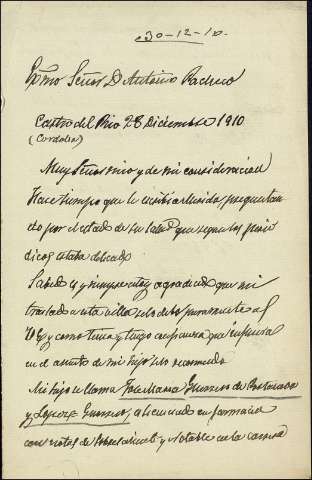 30-12-10.
Exmo Señor D Antonio Pacheco
Castro del Rio 28 Diciembre 1910
(Cordoba)
Muy Señor mio y de mi consideracion
Hace tiempo que le escribi
do por el estado de su salud que segun los perio
dicos estaba delicado
Sabe
traslado a esta villa solo debo puramente al
y como tenia y tengo
en el asunto de mi hijo se lo recomiendo
Mi hijo se llama Jose Maria Guerrero de
y Lopez Guerrero, Licenciado en farmacia
con notas de Sobresaliente y Notable en la carrera